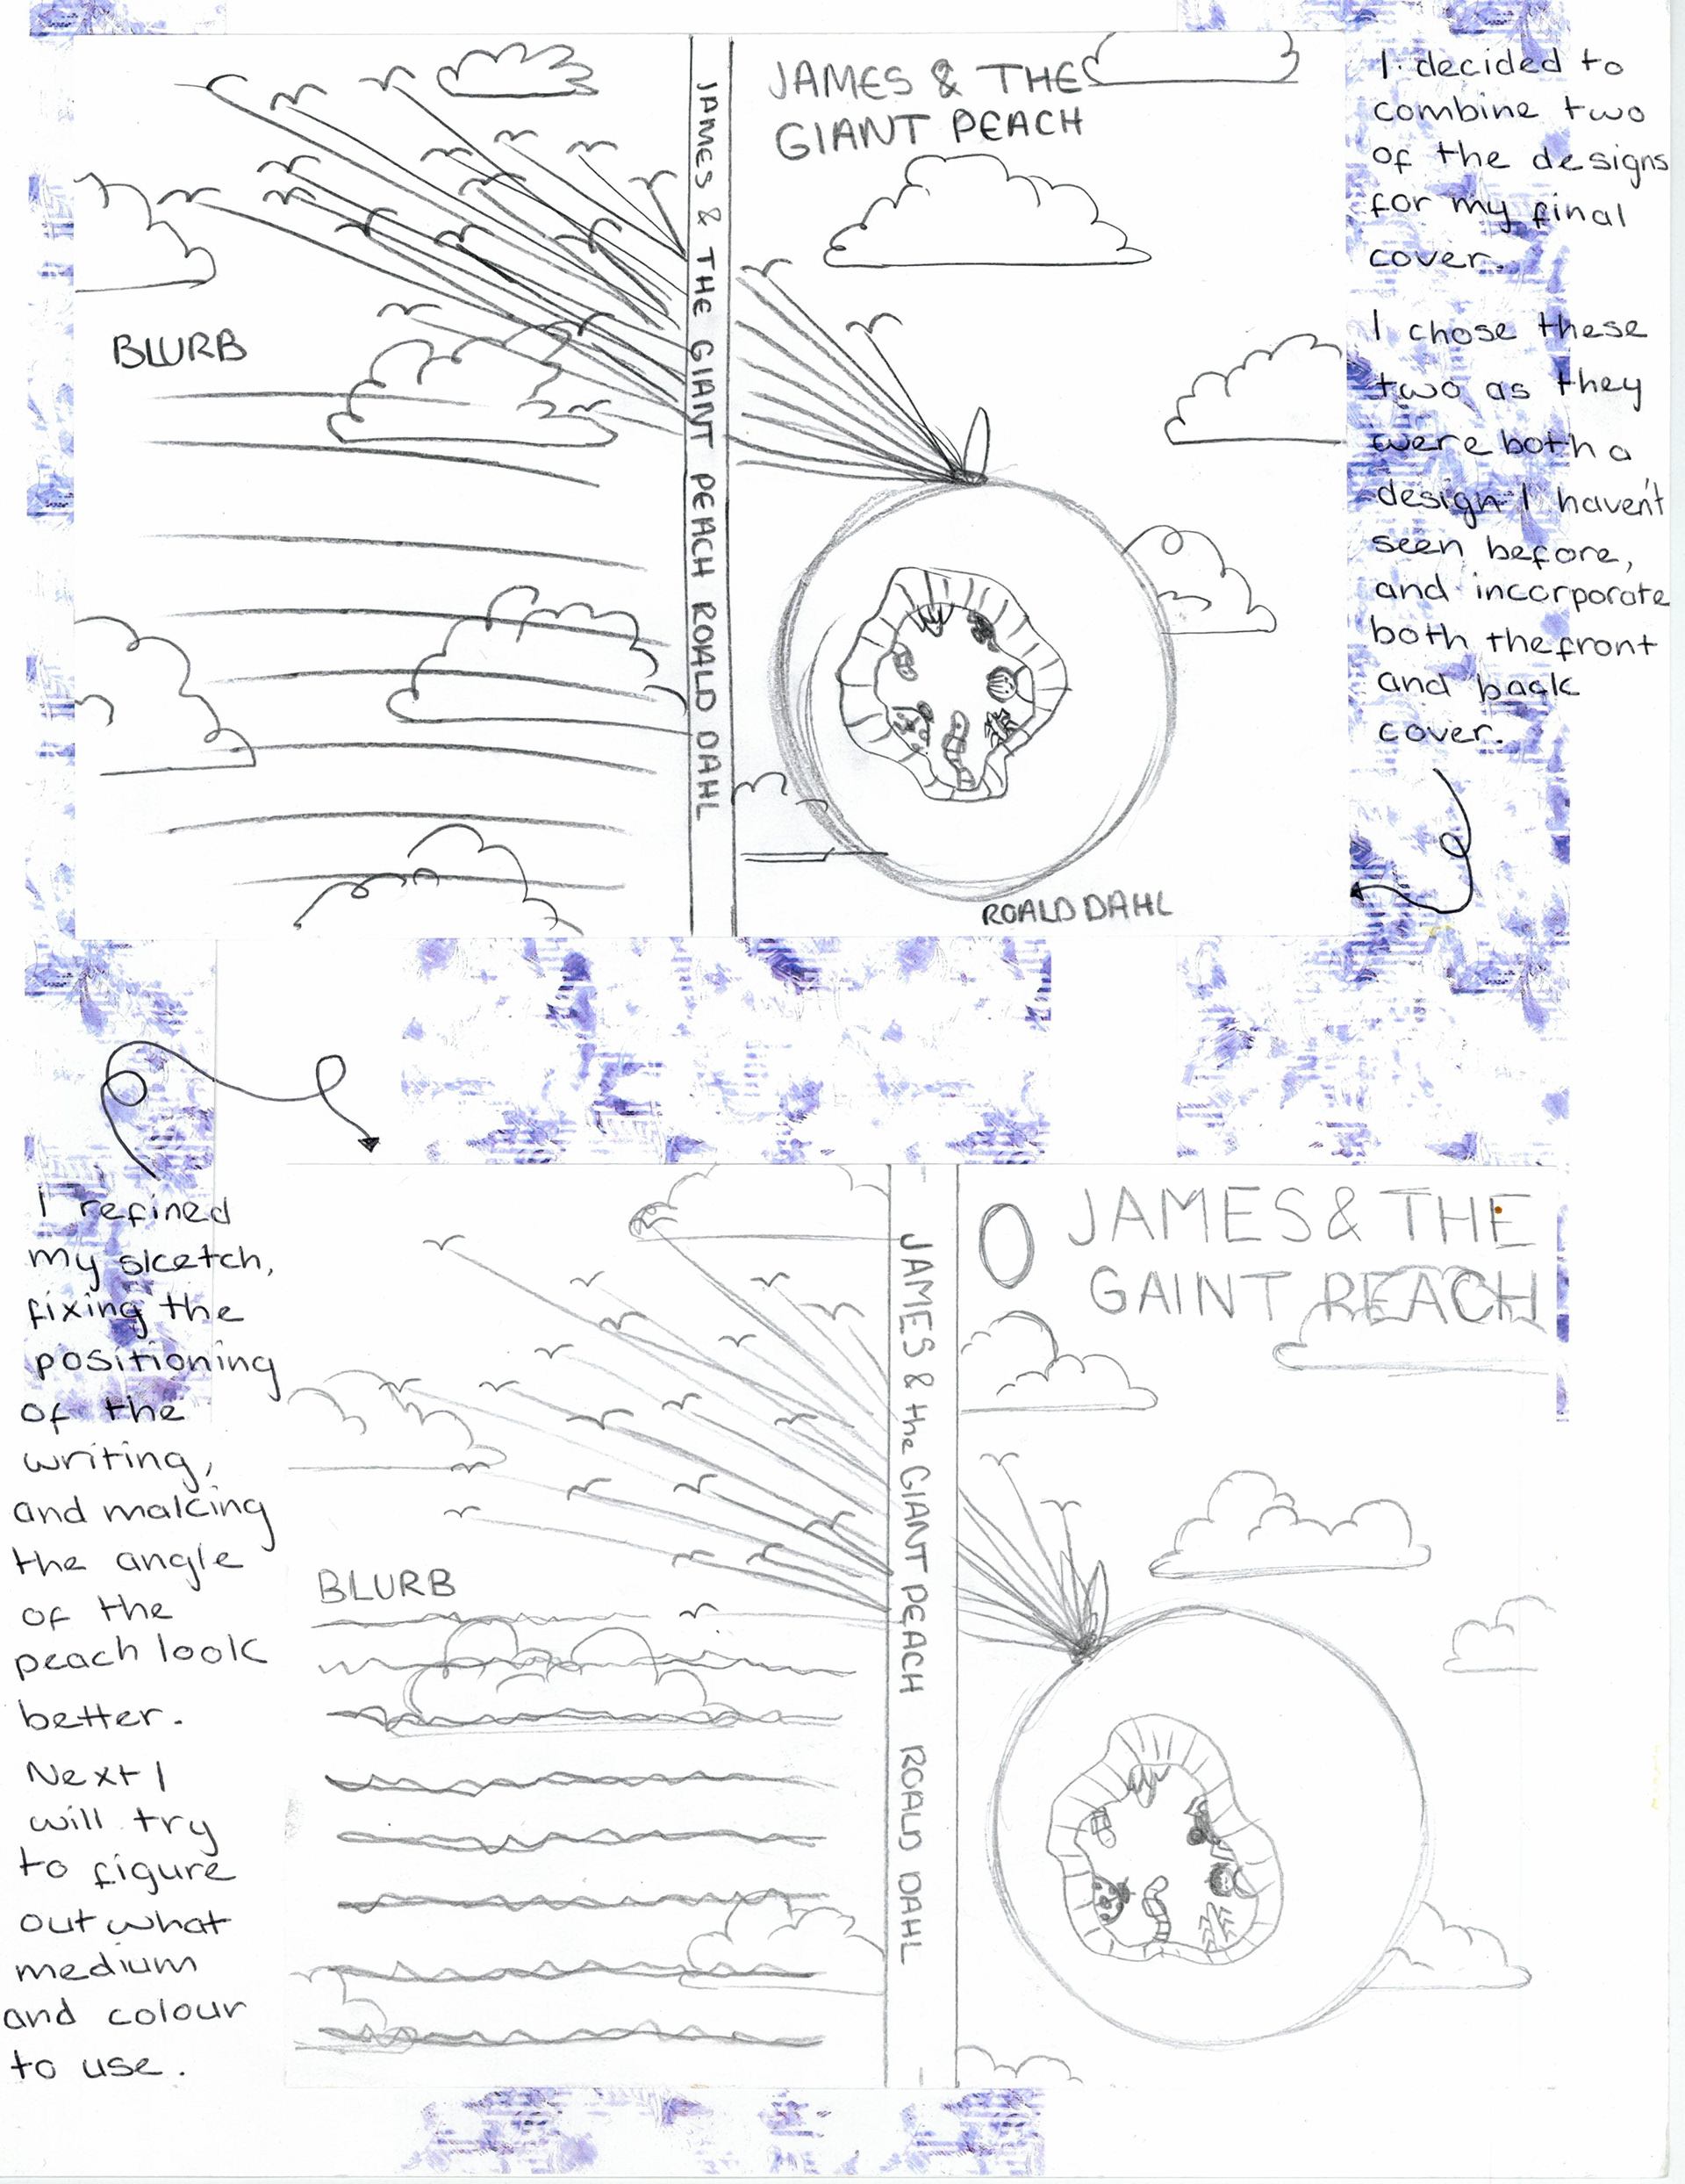 JAMES & THE
GIANT PEACH
BLURB
JAMES & THE GIANT PEACH ROALD DAHL
ROALD DAHL
I decided to
combine two
of the designs
for my final
cover.
I chose these
two as they
were both a
design I haven't
seen before,
and incorporate
both the front
and back
cover.
I refined
my sketch,
fixing the
positioning
of the
writing,
and making
the angle
of the
peach look
better.
Next I
will try
to figure
out what
medium
and colour
to use.
JAMES & THE
GAINT PEACH
BLURB
JAMES & the GIANT PEACH ROALD DAHL